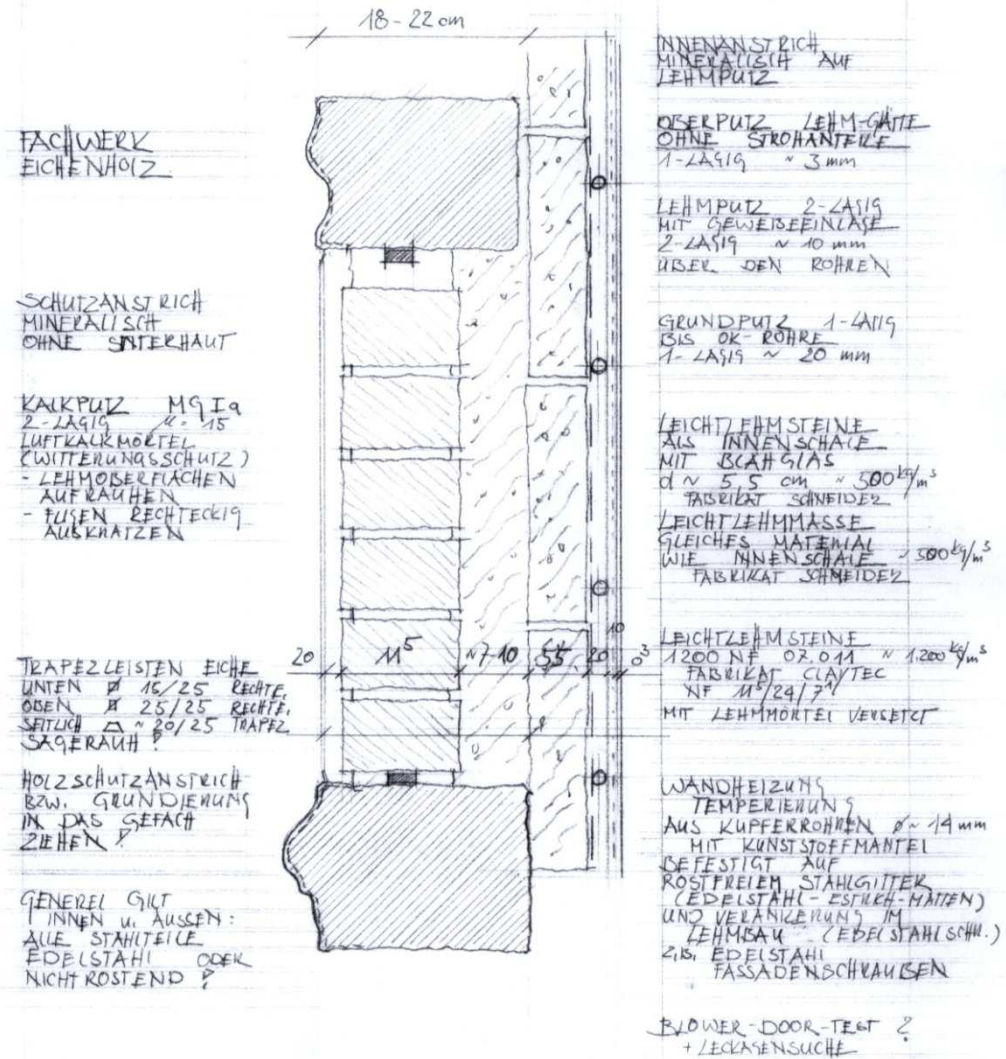 18-22 cm
FACHWERK
EICHENHOLZ
SCHUTZANSTRICH
MINERALISCH
OHNE SINTERHAUT
KALKPUTZ MG Ia
2-LAGIG 15
LUFTKALKMÖRTEL
(WITTERUNGSSCHUTZ)
- LEHMOBERFLÄCHEN
AUFRAUHEN
- FUGEN RECHTECKIG
AUSKRATZEN
TRAPEZLEISTEN EICHE
UNTEN 16/25 RECHTE.
OBEN 25/25 RECHTE.
SEITLICH ~ 20/25 TRAPEZ
SÄGERAUH !
HOLZSCHUTZANSTRICH
BZW. GRUNDIERUNG
IN DAS GEFACH
ZIEHEN !
GENEREL GILT
INNEN u. AUSSEN:
ALLE STAHLTEILE
EDELSTAHL ODER
NICHT ROSTEND !
20 11⁵ ~7-10 5,5 20 10 0³
INNENANSTRICH
MINERALISCH AUF
LEHMPUTZ
OBERPUTZ LEHM-GLÄTTE
OHNE STROHANTEILE
1-LAGIG ~ 3 mm
LEHMPUTZ 2-LAGIG
MIT GEWEBEEINLAGE
2-LAGIG ~ 10 mm
ÜBER DEN ROHREN
GRUNDPUTZ 1-LAGIG
BIS OK-ROHRE
1-LAGIG ~ 20 mm
LEICHTLEHMSTEINE
ALS INNENSCHALE
MIT BLÄHGLAS
d ~ 5,5 cm ~ 500 kg/m³
FABRIKAT SCHNEIDER
LEICHTLEHMMASSE
GLEICHES MATERIAL
WIE INNENSCHALE ~ 500 kg/m³
FABRIKAT SCHNEIDER
LEICHTLEHMSTEINE
1200 NF 07.011 ~ 1.200 kg/m³
FABRIKAT CLAYTEC
NF 11⁵/24/7¹
MIT LEHMMÖRTEL VERSETZT
WANDHEIZUNG
TEMPERIERUNG
AUS KUPFERROHREN ø ~ 14 mm
MIT KUNSTSTOFFMANTEL
BEFESTIGT AUF
ROSTFREIEM STAHLGITTER
(EDELSTAHL-ESTRICH-MATTEN)
UND VERANKERUNG IM
LEHMBAU (EDELSTAHLSCHR.)
Z.B. EDELSTAHL
FASSADENSCHRAUBEN
BLOWER-DOOR-TEST !
+ LECKAGENSUCHE